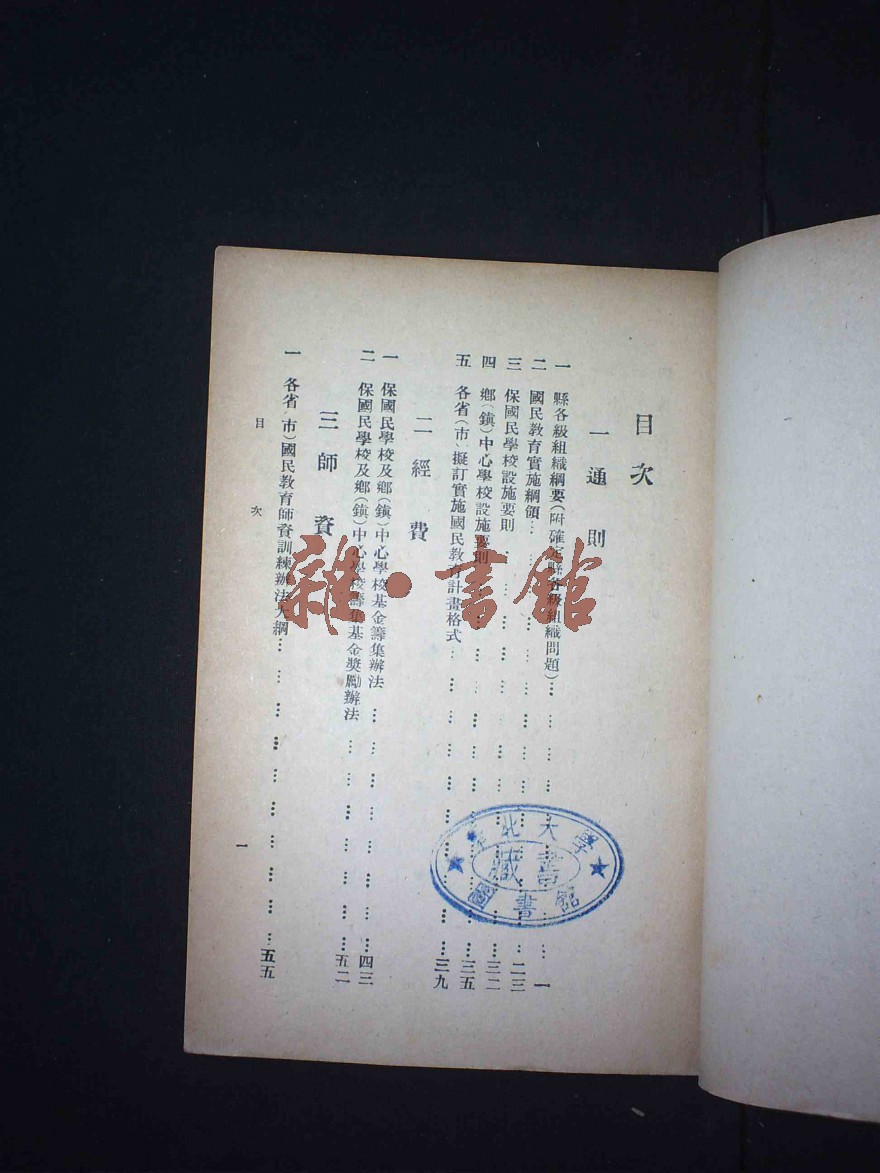 目次
一通則
一 縣各級組織綱要(附確定縣各級組織問題)……………一
二 國民教育實施綱領……………二三
三 保國民學校設施要則……………三二
四 鄉(鎮)中心學校設施要則……………三五
五 各省(市)擬訂實施國民教育計畫格式……………三九
二經費
一 保國民學校及鄉(鎮)中心學校基金籌集辦法……………四三
二 保國民學校及鄉(鎮)中心學校籌集基金獎勵辦法……………五二
三師資
一 各省(市)國民教育師資訓練辦法大綱……………五五
目次
一
雜·書館
北大學
藏書
圖書館